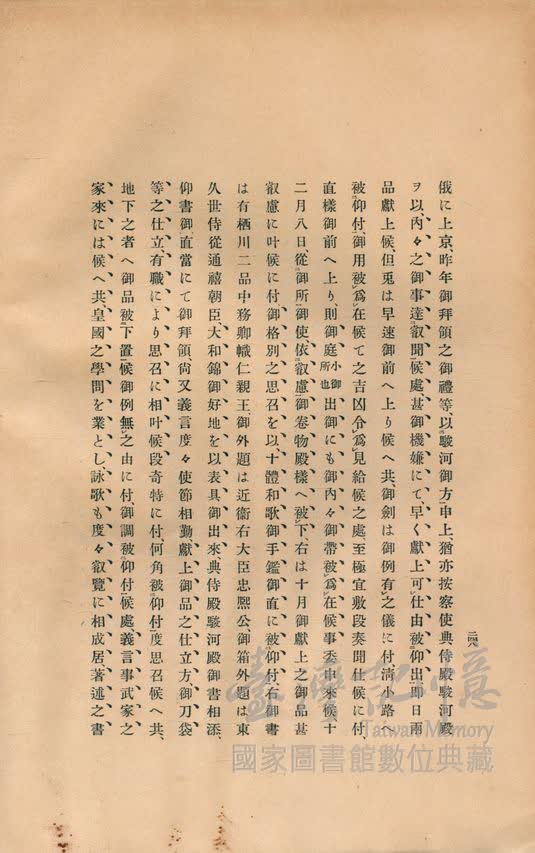 二四八
俄に上京、昨年御拜領之御禮等、以駿河御方申上、猶亦按察使典侍殿駿河殿
ヲ以、内々之御事達叡聞候處、甚御機嫌にて、早く獻上可仕由被仰出、卽日兩
品獻上候、但兎は早速御前へ上り候へ共、御劍は御例有之儀に付清小路へ
被仰付、御用被爲在候て之吉凶令爲見給候之處、至極宜敷段奏聞仕候に付、
直樣御前へ上り、則御庭小御所也出御にも御内々御帶被爲在候事委申來候、十
二月八日、從御所御使、依叡慮御卷物殿樣へ被下、右は十月獻上之御品甚
叡慮に叶候に付、御格別之思召を以十體和歌御手鑑御直に被仰付、右御書
は有栖川二品中務卿幟仁親王御外題は近衞右大臣忠熙公、御箱外題は東
久世侍從通禧朝臣、大和錦御好地を以表具御出來、典侍殿駿河殿御書相添、
仰書御直當にて御拜領、尙又義言度々使節相勤、獻上御品之仕立方御刀袋
等之仕立、有職により思召に相叶候段奇特に付、何角被仰付度思召候へ共、
地下之者へ御品被下置候御例無之由に付、御調被仰付候處、義言事武家之
家來には候へ共、皇國之學問を業とし、詠歌も度々叡覽に相成居、著述之書
臺灣記憶
Taiwan Memory
國家圖書館數位典藏